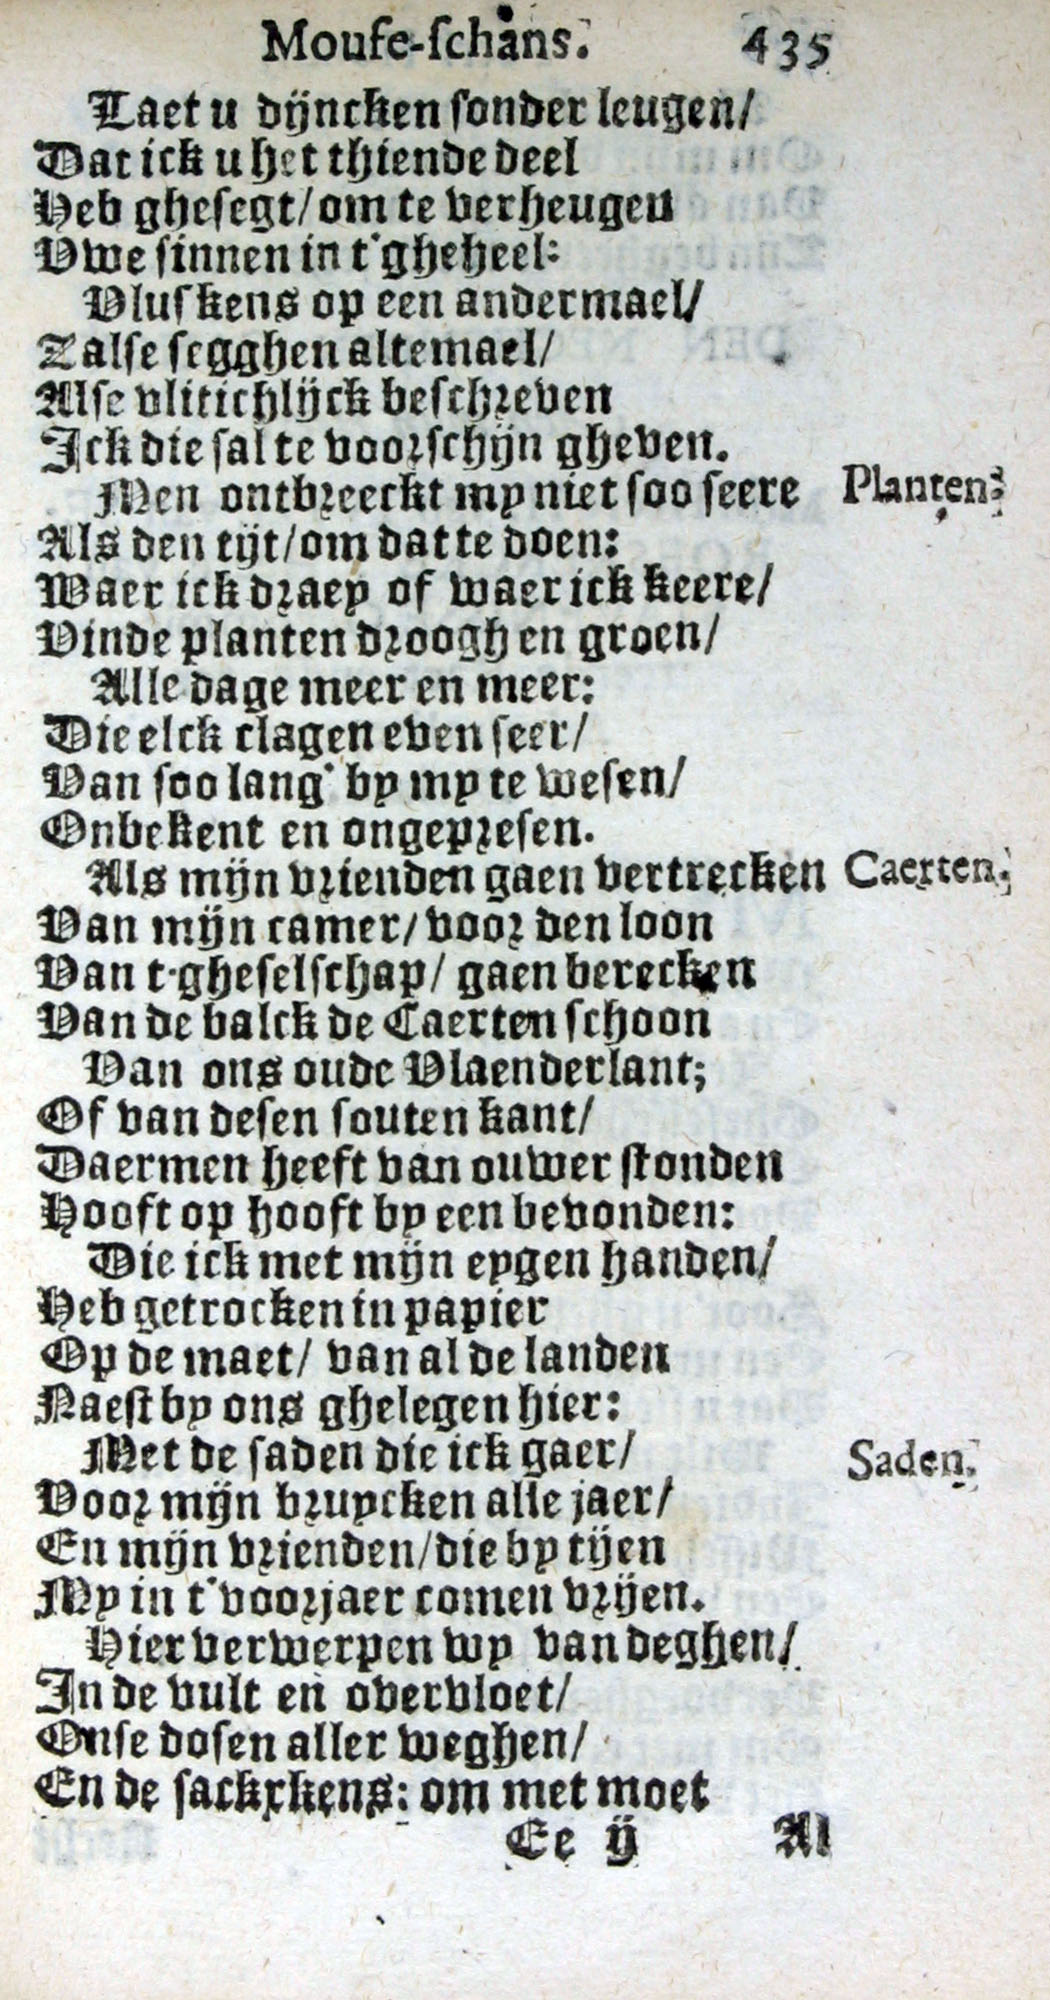 Mouse-schans. 435
Laet u dijncken sonder leugen/
Dat ick u het thiende deel
Heb ghesegt/om te verheugen
Vwe sinnen in t'gheheel:
Vluskens op een andermael/
Zalse segghen altemael/
Alse vlitichlijck beschreven
Ick die sal te voorschijn gheven.
Men ontbreeckt my niet soo seere Planten:
Als den tijt/om dat te doen:
Waer ick draey of waer ick keere/
Vinde planten droogh en groen/
Alle dage meer en meer:
Die elck clagen even seer/
Van soo lang' by my te wesen/
Onbekent en ongepresen.
Als mijn vrienden gaen vertrecken Caerten.
Van mijn camer/voor den loon
Van t'gheselschap/ gaen berecken
Van de balck de Caerten schoon
Van ons oude Vlaenderlant;
Of van desen souten kant/
Daermen heeft van ouwer stonden
Hooft op hooft by een bevonden:
Die ick met mijn eygen handen/
Heb getrocken in papier
Op de maet/ van al de landen
Naest by ons ghelegen hier:
Met de saden die ick gaer/ Saden.
Voor mijn bruycken alle jaer/
En mijn vrienden/die by tijen
My in t'voorjaer comen vrijen.
Hier verwerpen wy van deghen/
In de vult en overvloet/
Onse dosen aller weghen/
En de sackxkens: om met moet
Ee ij Al